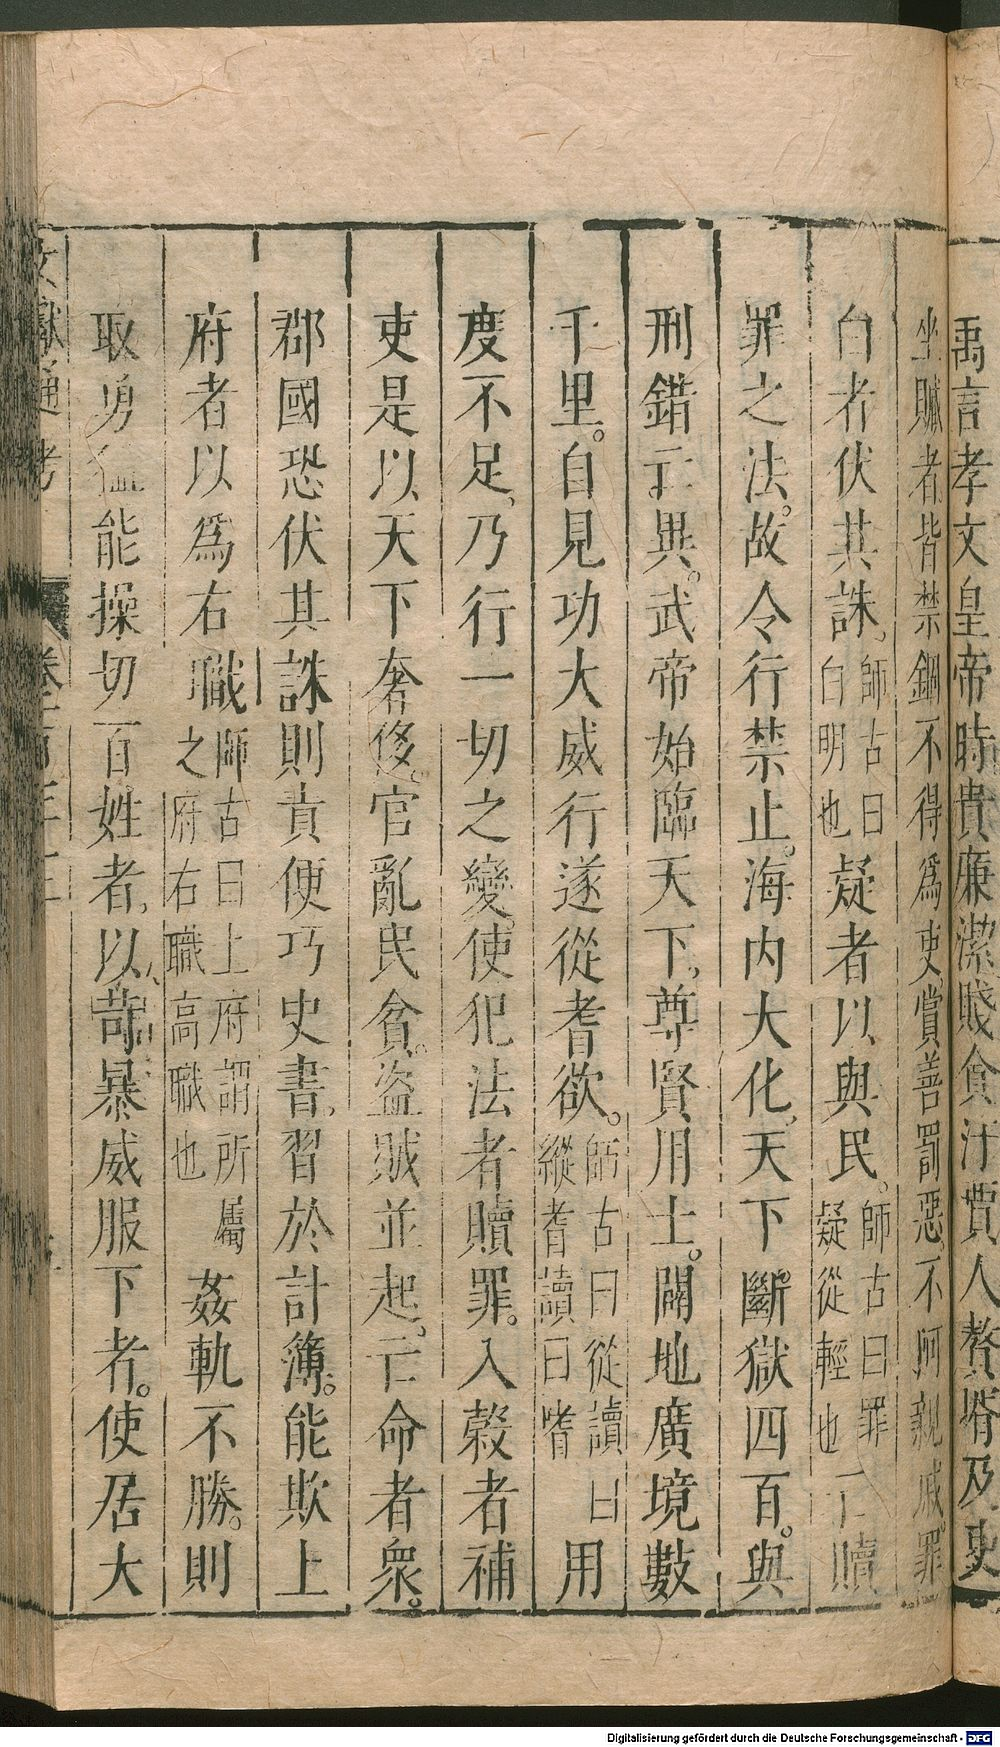 禹言孝文皇帝時貴廉潔賤貪汙賈人贅壻及吏
坐贓者皆禁錮不得爲吏賞善罰惡不阿親戚罪
白者伏其誅師古曰白明也疑者以與民師古曰罪疑從輕也亡贖
罪之法故令行禁止海内大化天下斷獄四百與
刑錯亡異武帝始臨天下尊賢用士闢地廣境數
千里自見功大威行遂從耆欲師古曰從讀曰縱耆讀曰嗜用
度不足乃行一切之變使犯法者贖罪入穀者補
吏是以天下奢侈官亂民貧盜賊並起亡命者衆
郡國恐伏其誅則責便巧史書習於計簿能欺上
府者以爲右職師古曰上府謂所屬之府右職高職也姦軌不勝則
取勇猛能操切百姓者以苛暴威服下者使居大
文獻通考
卷二百三十三
Digitalisierung gefördert durch die Deutsche Forschungsgemeinschaft - DFG